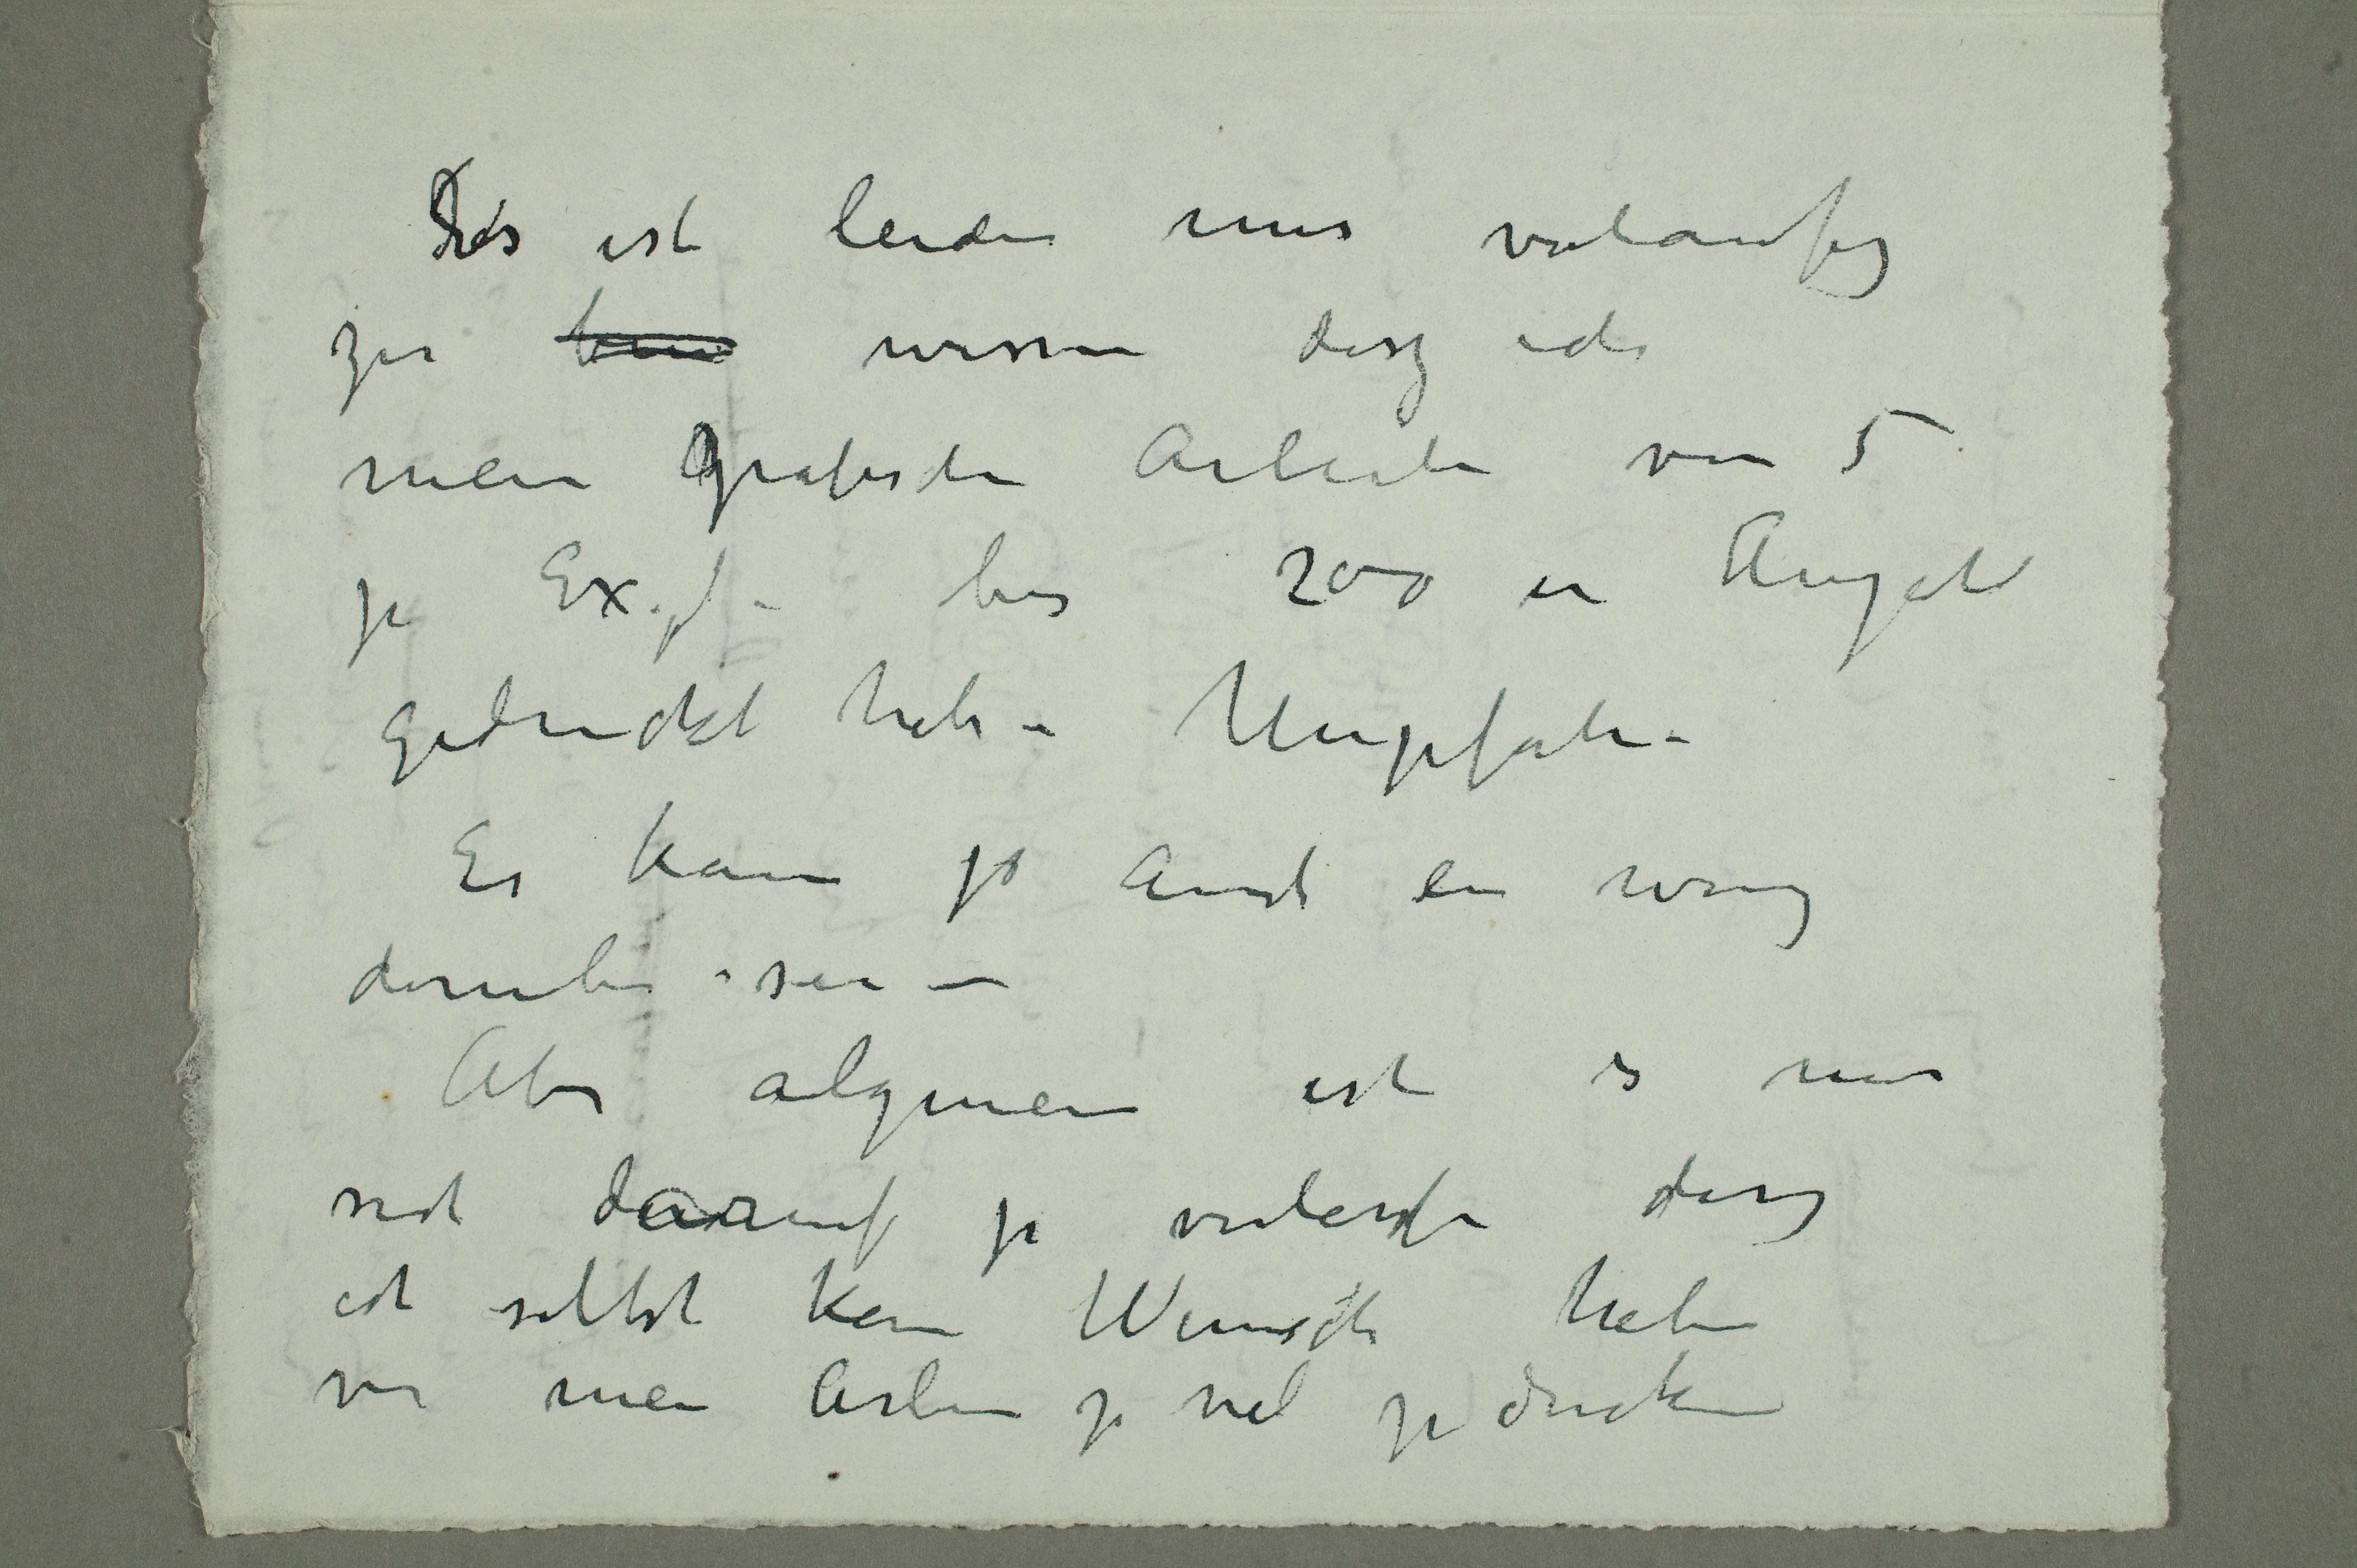 Dies ist leider nur vorlaufig
zu wissen dasz ich
meine grafischen Arbeiten von 5
zu Expl. bis 200 in Anzahl
gedruckt habe – Ungefähr –
Es kann ja auch ein wenig
daruber sein –
Aber algemein ist es nur
sich darauf zu verlassen dasz
ich selbst kein Wunsch habe
von meine Arbeiten zu viel zu drucken